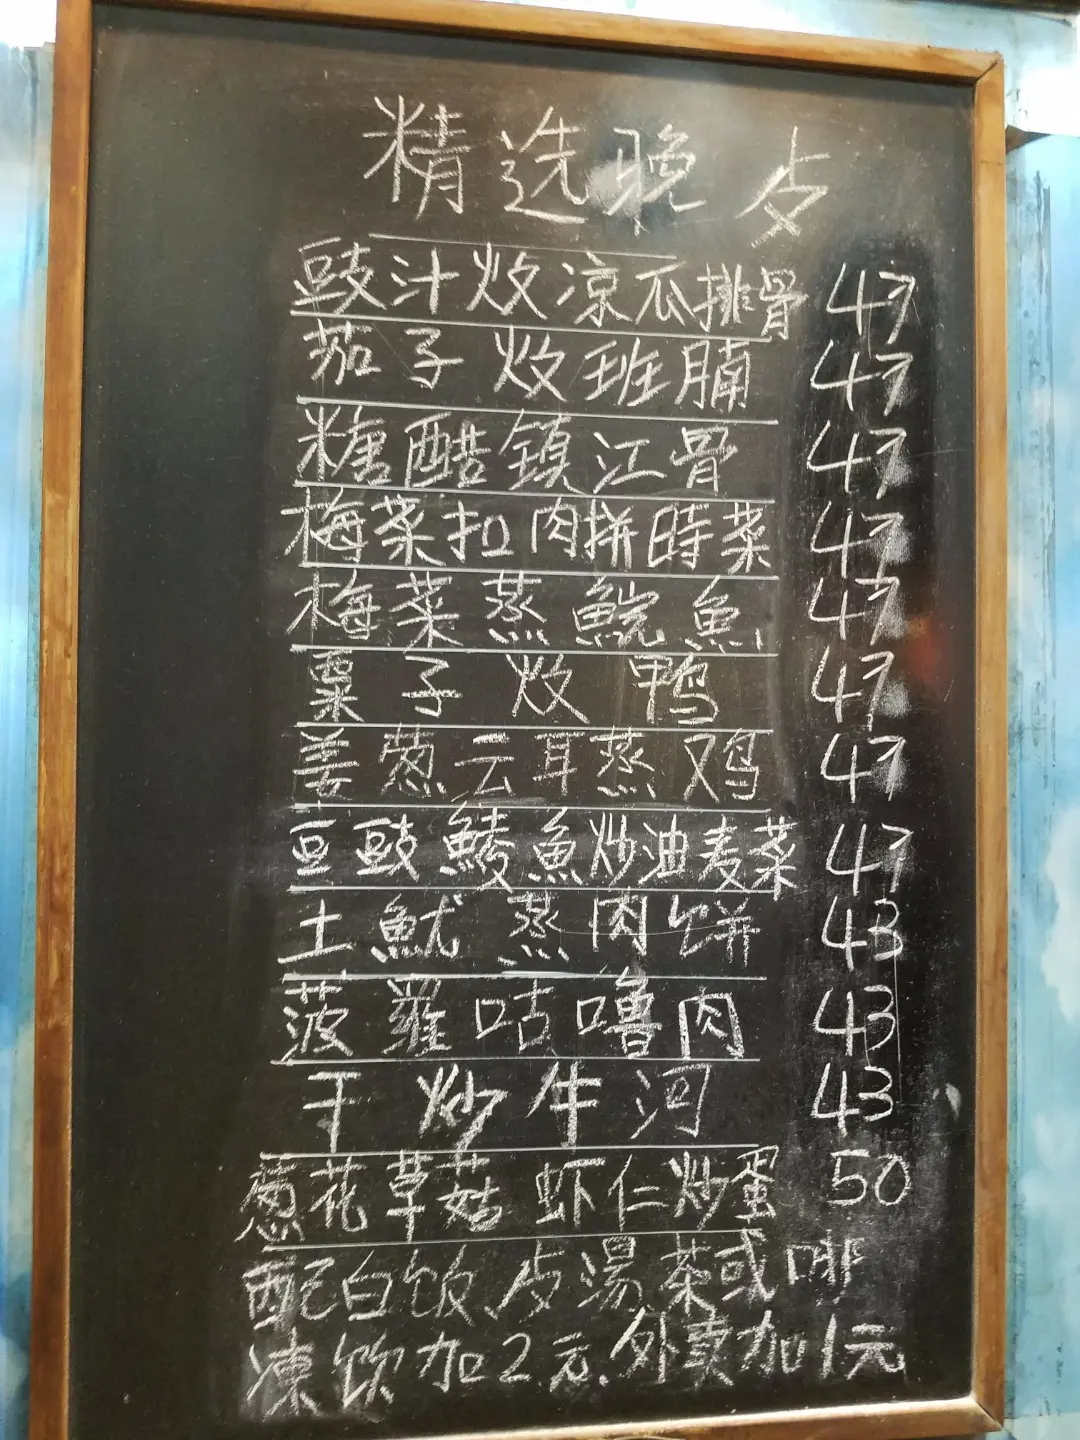 精选晚歺
豉汁炆凉瓜排骨 47
茄子炆班腩 47
糖醋鎮江骨 47
梅菜扣肉拼時菜 47
梅菜蒸鯇魚 47
粟子炆鸭 47
姜葱云耳蒸鸡 47
豆豉鯪魚炒油麦菜 47
土魷蒸肉饼 43
菠蘿咕嚕肉 43
干炒牛河 43
葱花草菇虾仁炒蛋 50
配白饭、歺湯茶或啡
凍饮加2元.外卖加1元